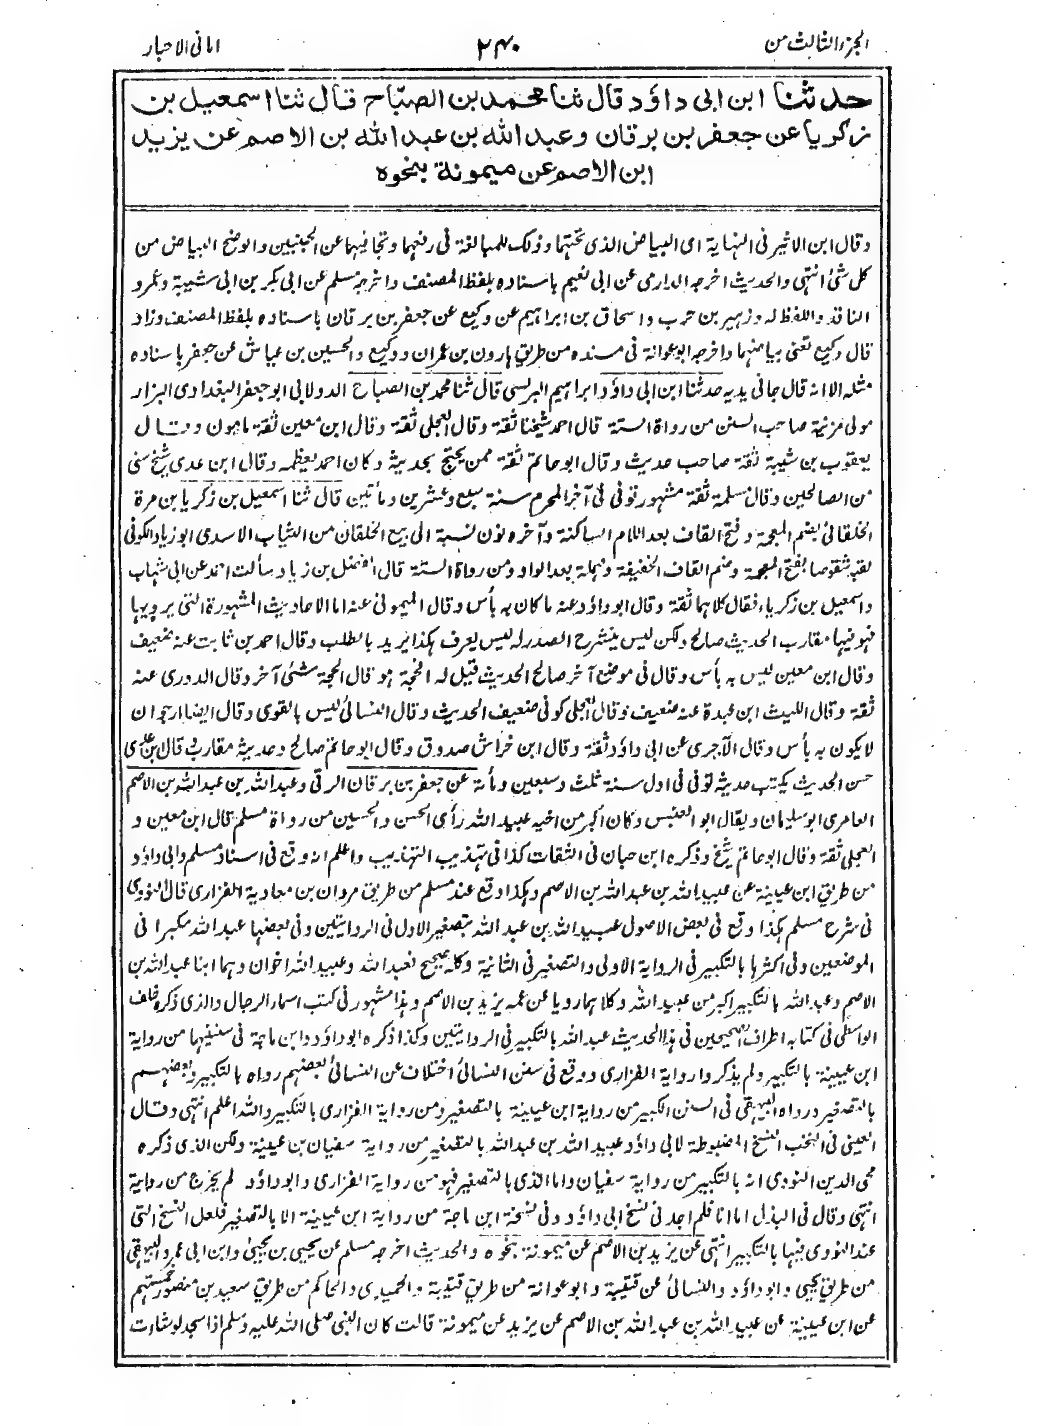 الجزء الثالث من
۲۴۰
امانی الاحبار
حدثنا ابن ابی داؤد قال ثنا محمد بن الصباح قال ثنا اسمعیل بن
زکریا عن جعفر بن برقان وعبد الله بن عبد الله بن الاصم عن یزید
ابن الاصم عن میمونة بنحوه
وقال ابن الاثیر فی النہایة ای البیاض الذی تحتہا وذلک للمبالغة فی رفعہا وتجافیہما عن الجنبین والوضح البیاض من
کل شئ انتہی والحدیث اخرجہ الدارمی عن ابی نعیم باسنادہ بلفظ المصنف واخرجہ مسلم عن ابی بکر بن ابی شیبة وعمرو
الناقد واللفظ لہ وزہیر بن حرب واسحاق بن ابراہیم عن وکیع عن جعفر بن برقان باسنادہ بلفظ المصنف وزاد
قال وکیع تعنی بیاضہما واخرجہ ابو عوانة فی مسندہ من طریق ہارون بن عمران ووکیع والحسین بن عیاش عن جعفر باسنادہ
مثلہ الا انہ قال جافی یدیہ حدثنا ابن ابی داؤد ابراہیم البرلسی قال ثنا محمد بن الصباح الدولابی ابو جعفر البغدادی البزار
مولی مزنیة صاحب السنن من رواة الستة قال احمد شیخنا ثقة وقال العجلی ثقة وقال ابن معین ثقة مامون وقال
یعقوب بن شیبة ثقة صاحب حدیث وقال ابو حاتم ثقة ممن یحتج بحدیثہ وکان احمد یعظمہ وقال ابن عدی شیخ سنی
من الصالحین وقال مسلمة ثقة مشہور توفی فی آخر المحرم سنة سبع وعشرین ومأتین قال ثنا اسمعیل بن زکریا بن مرة
الخلقانی بضم المعجمة وفتح القاف بعد اللام الساکنة وآخرہ نون نسبة الی بیع الخلقان من الثیاب الاسدی ابو زیاد الکوفی
لقبہ شقوصا بفتح المعجمة وضم القاف الخفیفة ومہملة بعد الواو من رواة الستة قال الفضل بن زیاد سألت احمد عن ابی شہاب
واسمعیل بن زکریاء فقال کلاہما ثقة وقال ابو داؤد عنہ ما کان بہ بأس وقال المیمونی عنہ اما الاحادیث المشہورة التی یرویہا
فہو فیہا مقارب الحدیث صالح ولکن لیس ینشرح الصدر لہ لیس یعرف ہکذا یرید بالطلب وقال احمد بن ثابت عنہ ضعیف
وقال ابن معین لیس بہ بأس وقال فی موضع آخر صالح الحدیث قیل لہ الحجة ہو قال الحجة شئ آخر وقال الدوری عنہ
ثقة وقال اللیث ابن عبدة عنہ ضعیف وقال العجلی کوفی ضعیف الحدیث وقال النسائی لیس بالقوی وقال ایضا ارجو ان
لا یکون بہ بأس وقال الآجری عن ابی داؤد ثقة وقال ابن خراش صدوق وقال ابو حاتم صالح وحدیثہ مقارب قال ابن عدی
حسن الحدیث یکتب حدیثہ توفی فی اول سنة ثلث وسبعین ومأة عن جعفر بن برقان الرقی وعبد الله بن عبد الله بن الاصم
العامری ابو سلیمان ویقال ابو العنبس وکان اکبر من اخیہ عبید الله رأی الحسن والحسین من رواة مسلم قال ابن معین و
العجلی ثقة وقال ابو حاتم شیخ وذکرہ ابن حبان فی الثقات کذا فی تہذیب التہذیب واعلم انہ وقع فی اسناد مسلم وابی داؤد
من طریق ابن عیینة عن عبید الله بن عبد الله بن الاصم وہکذا وقع عند مسلم من طریق مروان بن معاویة الفزاری قال النووی
فی شرح مسلم ہکذا وقع فی بعض الاصول عبید الله بن عبد الله بتصغیر الاول فی الروایتین وفی بعضہا عبد الله مکبرا فی
الموضعین وفی اکثرہا بالتکبیر فی الروایة الاولی والتصغیر فی الثانیة وکلہ صحیح فعبد الله وعبید الله اخوان وہما ابنا عبد الله بن
الاصم وعبد الله بالتکبیر اکبر من عبید الله وکلاہما رویا عن عمہ یزید بن الاصم وہذا مشہور فی کتب اسماء الرجال والذی ذکرہ خلف
الواسطی فی کتابہ اطراف الصحیحین فی ہذا الحدیث عبد الله بالتکبیر فی الروایتین وکذا ذکرہ ابو داؤد وابن ماجة فی سننیہما من روایة
ابن عیینة بالتکبیر ولم یذکروا روایة الفزاری ووقع فی سنن النسائی اختلاف عن النسائی بعضہم رواہ بالتکبیر وبعضہم
بالتصغیر ورواہ البیہقی فی السنن الکبیر من روایة ابن عیینة بالتصغیر ومن روایة الفزاری بالتکبیر والله اعلم انتہی وقال
العینی فی النخب النسخ المضبوطة لابی داؤد عبید الله بن عبد الله بالتصغیر من روایة سفیان بن عیینة ولکن الذی ذکرہ
محی الدین النووی انہ بالتکبیر من روایة سفیان واما الذی بالتصغیر فہو من روایة الفزاری وابو داؤد لم یخرج من روایة
انتہی وقال فی البذل اما انا فلم اجد فی نسخ ابی داؤد وفی نسخة ابن ماجة من روایة ابن عیینة الا بالتصغیر فلعل النسخ التی
عند النووی فیہا بالتکبیر انتہی عن یزید بن الاصم عن میمونة بنحوہ والحدیث اخرجہ مسلم عن یحیی بن یحیی وابن ابی عمر والبیہقی
من طریق یحیی وابو داؤد والنسائی عن قتیبة وابو عوانة من طریق قتیبة والحمیدی والحاکم من طریق سعید بن منصور خمستہم
عن ابن عیینة عن عبید الله بن عبد الله بن الاصم عن یزید عن میمونة قالت کان النبی صلی الله علیہ وسلم اذا سجد لو شاءت